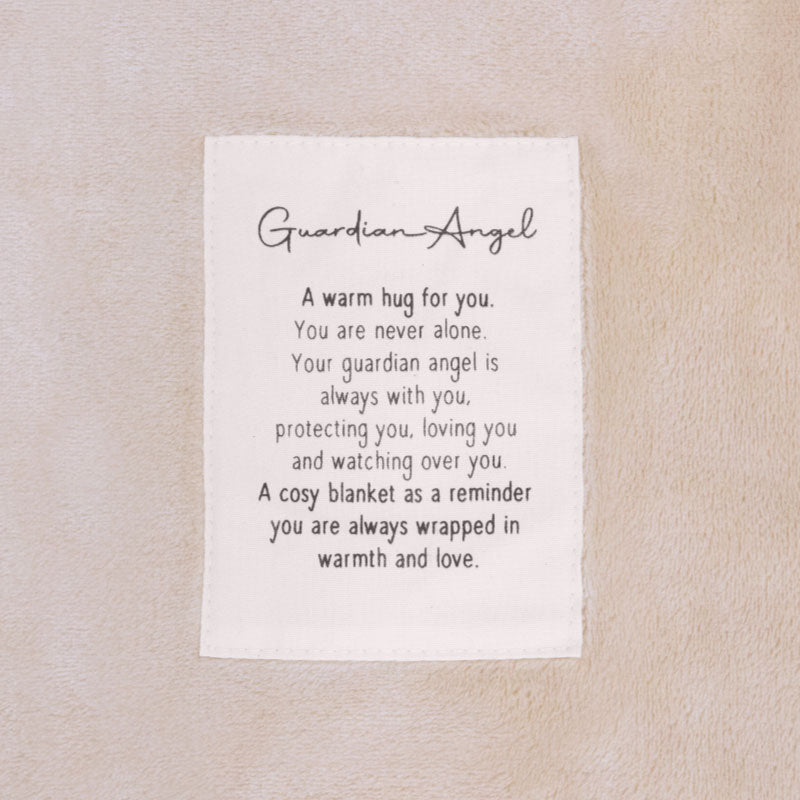 Guardian Angel
A warm hug for you.
You are never alone.
Your guardian angel is
always with you,
protecting you, loving you
and watching over you.
A cosy blanket as a reminder
you are always wrapped in
warmth and love.